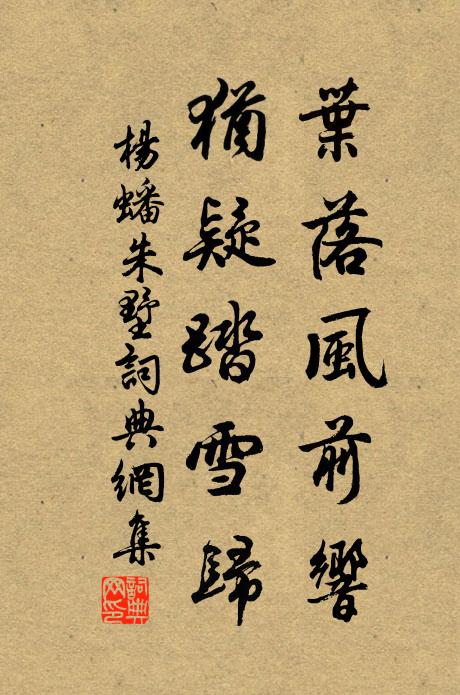 葉落風前響
猶疑踏雪歸
楊蟠朱墅詞典網集
詞典网印